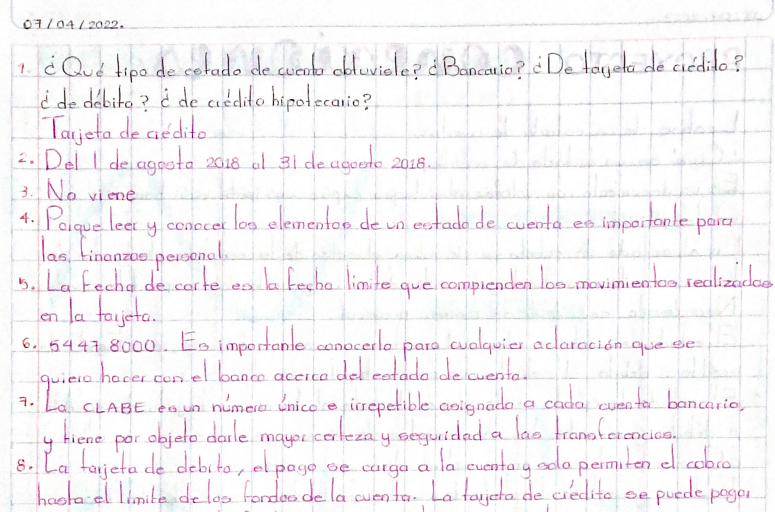 07/04/2022.
1. ¿Qué tipo de estado de cuenta obtuviste? ¿Bancario? ¿De tarjeta de crédito?
¿de débito? ¿de crédito hipotecario?
Tarjeta de crédito
2. Del 1 de agosto 2018 al 31 de agosto 2018.
3. No viene
4. Porque leer y conocer los elementos de un estado de cuenta es importante para
las finanzas personal.
5. La fecha de corte es la fecha límite que comprenden los movimientos realizados
en la tarjeta.
6. 5447 8000. Es importante conocerlo para cualquier aclaración que se
quiera hacer con el banco acerca del estado de cuenta.
7. La CLABE es un número único e irrepetible asignado a cada cuenta bancaria,
y tiene por objeto darle mayor certeza y seguridad a las transferencias.
8. La tarjeta de debito, el pago se carga a la cuenta y solo permiten el cobro
hasta el límite de los fondos de la cuenta. La tarjeta de crédito se puede pagar